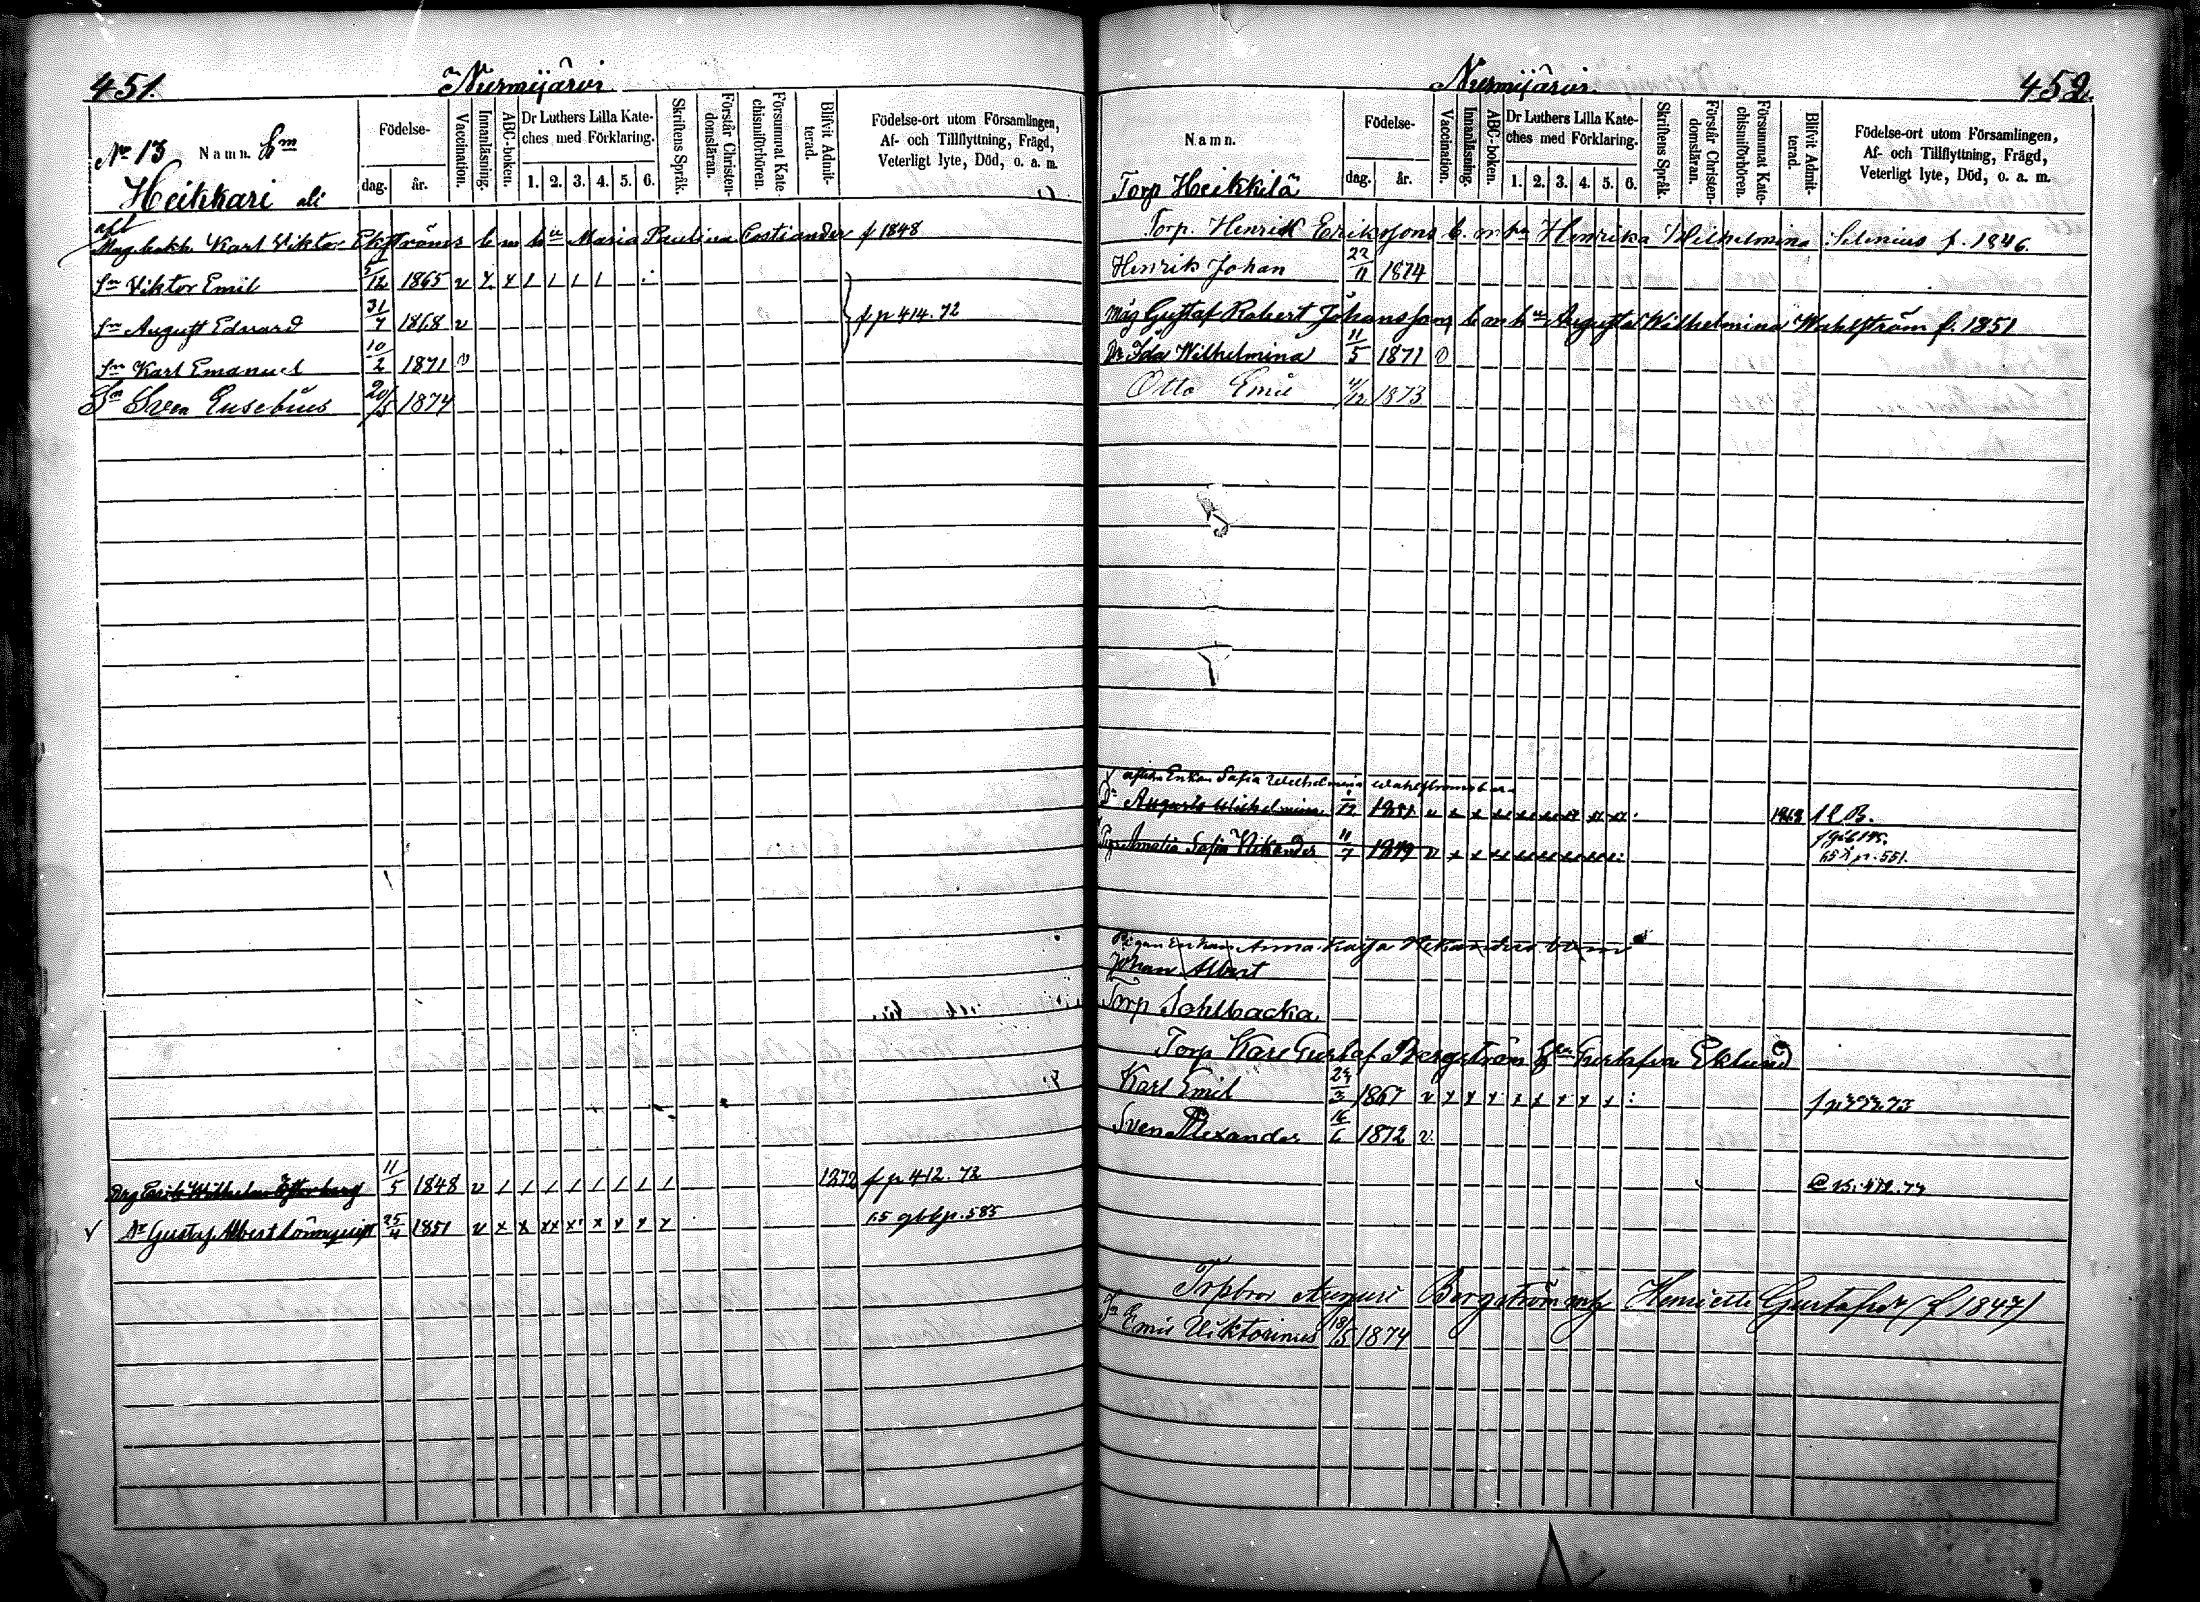 451.
Nurmijärvi
N a m n.
Födelse-
dag.
år.
Vaccination.
Innanläsning.
ABC-boken.
Dr Luthers Lilla Kate-
ches med Förklaring.
1. 2. 3. 4. 5. 6.
Skriftens Språk.
Förstår Christen-
domsläran.
Försummat Kate-
chismiförhören.
Blifvit Admit-
terad.
Födelse-ort utom Församlingen,
Af- och Tillflyttning, Frägd,
Veterligt lyte, Död, o. a. m.
No 13 Sm
Heikkari ali
aft
Karl Viktor Ekströms b m hu Maria Paulina Costiander f 1848
Sn Viktor Emil 5/12 1865 v x x 1 1 1 1
Sn August Edvard 31/7 1868 v f p 414. 72
Sn Karl Emanuel 10/2 1871 v
Sn Sven Eusebius 20/5 1874
Drg Wilhelm Österberg 11/5 1848 v 1 1 1 1 1 1 1 1 1872 f p 412. 72
v Dr Gustaf Albert Lönnqvist 25/4 1851 v x x xx x x x x x 65 gbbp. 585
452.
Nurmijärvi.
N a m n.
Födelse-
dag.
år.
Vaccination.
Innanläsning.
ABC-boken.
Dr Luthers Lilla Kate-
ches med Förklaring.
1. 2. 3. 4. 5. 6.
Skriftens Språk.
Förstår Christen-
domsläran.
Försummat Kate-
chismiförhören.
Blifvit Admit-
terad.
Födelse-ort utom Församlingen,
Af- och Tillflyttning, Frägd,
Veterligt lyte, Död, o. a. m.
Torp Heikkilä
Torp. Henrik Erikssons b. m hu Henrika Wilhelmina Selenius f. 1846.
Henrik Johan 22/11 1874
Måg Gustaf Robert Johansson b m hu Augusta Wilhelmina Wahlström f. 1851
Dr Ida Wilhelmina 11/5 1871 v
Otto Emil 4/12 1873
Enkan Sofia Wilhelmina Wahlströms barn
Dr Augusta Wilhelmina 1/12 1851 1868
Pig. Amalia Sofia Vikander 11/7 1849 65 p. 551.
Pigan Enkan Anna Kajsa barn
Johan Albert
Torp Sohlbacka.
Torp Karl Gustaf Bergström Gustafva Eklund
Karl Emil 24/3 1867 v x x x x x x x x
Sven Alexander 16/6 1872 v
August Bergström Henriette Gustafva (f 1847)
Sn Emil Viktorinus 18/5 1874